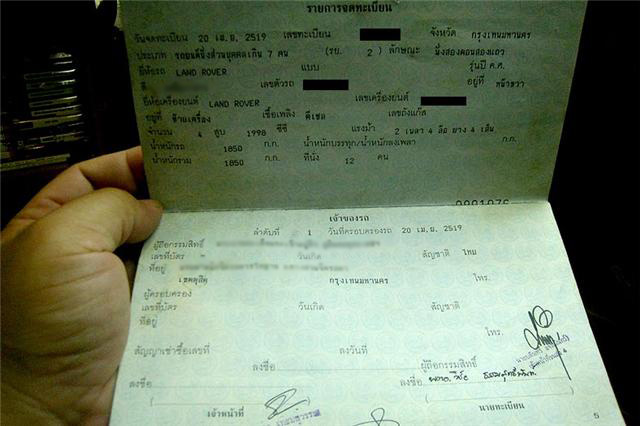 รายการจดทะเบียน
วันจดทะเบียน 20 เม.ย. 2519 เลขทะเบียน จังหวัด กรุงเทพมหานคร
ประเภท รถยนต์นั่งส่วนบุคคลเกิน 7 คน (รย. 2 ) ลักษณะ นั่งสองตอนสองแถว
ยี่ห้อรถ LAND ROVER แบบ รุ่นปี ค.ศ.
สี เลขตัวรถ อยู่ที่ หน้าขวา
ยี่ห้อเครื่องยนต์ LAND ROVER เลขเครื่องยนต์
อยู่ที่ ข้างเครื่อง เชื้อเพลิง ดีเซล เลขถังแก๊ส
จำนวน 4 สูบ 1998 ซีซี แรงม้า 2 เพลา 4 ล้อ ยาง 4 เส้น
น้ำหนักรถ 1850 ก.ก. น้ำหนักบรรทุก/น้ำหนักลงเพลา ก.ก.
น้ำหนักรวม 1850 ก.ก. ที่นั่ง 12 คน
เจ้าของรถ
ลำดับที่ 1 วันที่ครอบครองรถ 20 เม.ย. 2519
ผู้ถือกรรมสิทธิ์
เลขที่บัตร วันเกิด สัญชาติ ไทย
ที่อยู่
เขตดุสิต กรุงเทพมหานคร โทร.
ผู้ครอบครอง
เลขที่บัตร วันเกิด สัญชาติ
ที่อยู่
โทร.
สัญญาเช่าซื้อเลขที่ ลงวันที่ ผู้ถือกรรมสิทธิ์
ลงชื่อ ลงชื่อ ลงชื่อ
เจ้าหน้าที่ นายทะเบียน
5